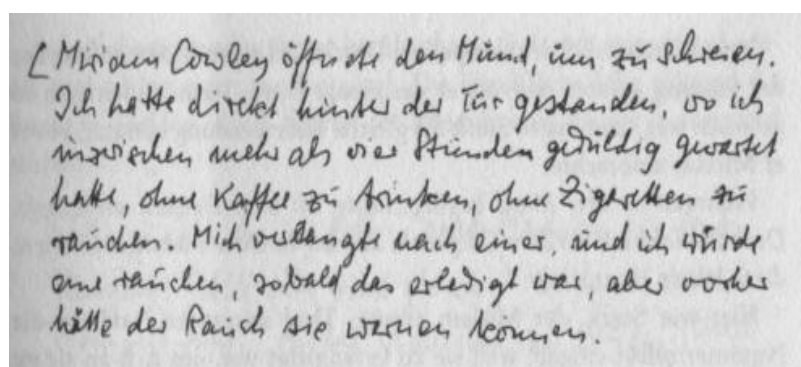 [ Miriam Cowley öffnete den Mund, um zu schreien.
Ich hatte direkt hinter der Tür gestanden, wo ich
inzwischen mehr als vier Stunden geduldig gewartet
hatte, ohne Kaffee zu trinken, ohne Zigaretten zu
rauchen. Mich verlangte nach einer, und ich würde
eine rauchen, sobald das erledigt war, aber vorher
hätte der Rauch sie warnen können.